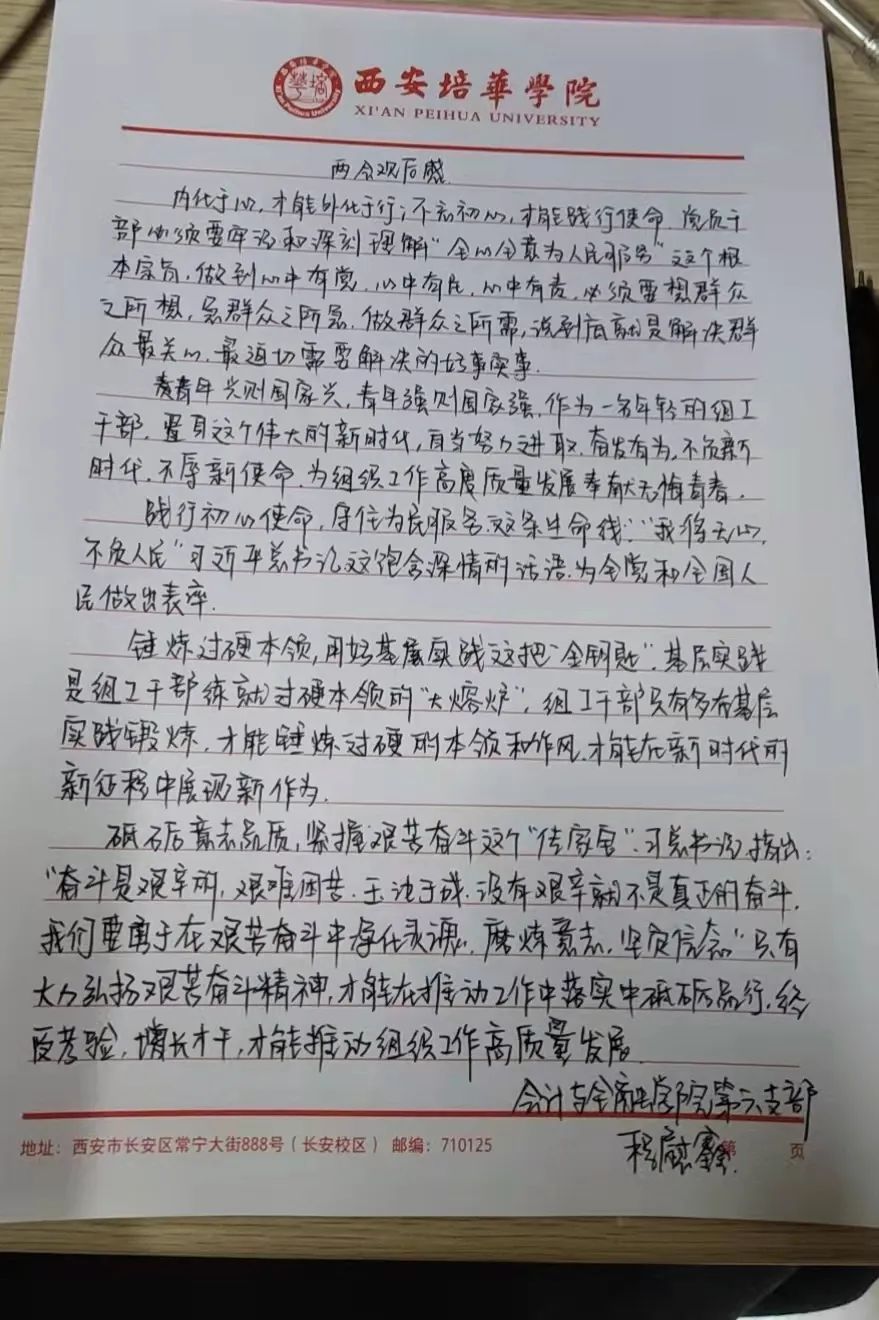 西安培華學院
XI'AN PEIHUA UNIVERSITY
两会观后感
内化于心,才能外化于行;不忘初心,才能践行使命.党员干
部必须要牢记和深刻理解"全心全意为人民服务"这个根
本宗旨,做到心中有党,心中有民,心中有责,必须要想群众
之所想,急群众之所急,做群众之所需,说到底就是解决群
众最关心,最迫切需要解决的好事实事.
青年兴则国家兴,青年强则国家强,作为一名年轻的组工
干部,置身这个伟大的新时代,自当努力进取,奋发有为,不负新
时代,不辱新使命,为组织工作高度质量发展奉献无悔青春.
践行初心使命,守住为民服务这条生命线."我将无我,
不负人民"习近平总书记这饱含深情的话语.为全党和全国人
民做出表率.
锤炼过硬本领,用好基层实践这把"金钥匙".基层实践
是组工干部练就过硬本领的"大熔炉",组工干部只有多在基层
实践锻炼,才能锤炼过硬的本领和作风.才能在新时代的
新征程中展现新作为.
砥砺意志品质,紧握艰苦奋斗这个"传家宝".习总书记指出:
"奋斗是艰辛的,艰难困苦、玉汝于成,没有艰辛就不是真正的奋斗,
我们要勇于在艰苦奋斗中净化灵魂、磨炼意志、坚定信念"只有
大力弘扬艰苦奋斗精神,才能在推动工作中落实中砥砺品行,经
受考验,增长才干,才能推动组织工作高质量发展.
会计与金融学院第六支部
程
地址:西安市长安区常宁大街888号(长安校区) 邮编:710125
第 页